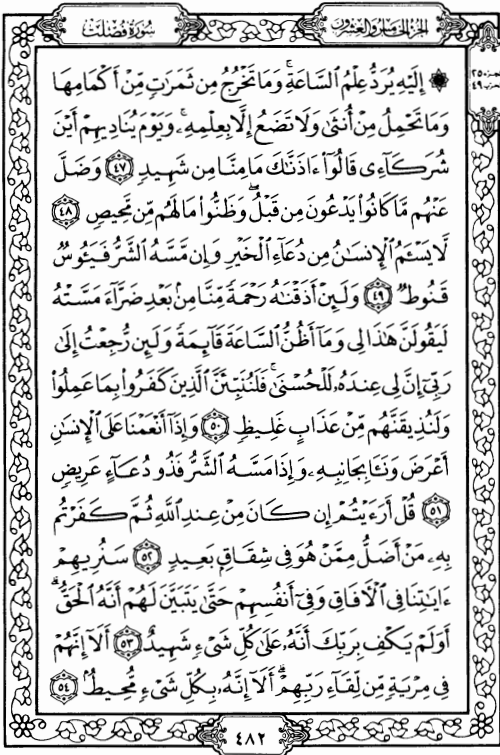 سُورَةُ فُصِّلَتْ
الجُزْءُ الخَامِسُ وَالعِشْرُونَ
۞ إِلَيْهِ يُرَدُّ عِلْمُ ٱلسَّاعَةِۚ وَمَا تَخْرُجُ مِن ثَمَرَٰتٍ مِّنْ أَكْمَامِهَا
وَمَا تَحْمِلُ مِنْ أُنثَىٰ وَلَا تَضَعُ إِلَّا بِعِلْمِهِۦۚ وَيَوْمَ يُنَادِيهِمْ أَيْنَ
شُرَكَآءِى قَالُوٓا۟ ءَاذَنَّٰكَ مَا مِنَّا مِن شَهِيدٍ ﴿٤٧﴾ وَضَلَّ
عَنْهُم مَّا كَانُوا۟ يَدْعُونَ مِن قَبْلُۖ وَظَنُّوا۟ مَا لَهُم مِّن مَّحِيصٍ ﴿٤٨﴾
لَّا يَسْـَٔمُ ٱلْإِنسَٰنُ مِن دُعَآءِ ٱلْخَيْرِ وَإِن مَّسَّهُ ٱلشَّرُّ فَيَـُٔوسٌ
قَنُوطٌ ﴿٤٩﴾ وَلَئِنْ أَذَقْنَٰهُ رَحْمَةً مِّنَّا مِنۢ بَعْدِ ضَرَّآءَ مَسَّتْهُ
لَيَقُولَنَّ هَٰذَا لِى وَمَآ أَظُنُّ ٱلسَّاعَةَ قَآئِمَةً وَلَئِن رُّجِعْتُ إِلَىٰ
رَبِّىٓ إِنَّ لِى عِندَهُۥ لَلْحُسْنَىٰۚ فَلَنُنَبِّئَنَّ ٱلَّذِينَ كَفَرُوا۟ بِمَا عَمِلُوا۟
وَلَنُذِيقَنَّهُم مِّنْ عَذَابٍ غَلِيظٍ ﴿٥٠﴾ وَإِذَآ أَنْعَمْنَا عَلَى ٱلْإِنسَٰنِ
أَعْرَضَ وَنَـَٔا بِجَانِبِهِۦ وَإِذَا مَسَّهُ ٱلشَّرُّ فَذُو دُعَآءٍ عَرِيضٍ
﴿٥١﴾ قُلْ أَرَءَيْتُمْ إِن كَانَ مِنْ عِندِ ٱللَّهِ ثُمَّ كَفَرْتُم
بِهِۦ مَنْ أَضَلُّ مِمَّنْ هُوَ فِى شِقَاقٍۭ بَعِيدٍ ﴿٥٢﴾ سَنُرِيهِمْ
ءَايَٰتِنَا فِى ٱلْءَافَاقِ وَفِىٓ أَنفُسِهِمْ حَتَّىٰ يَتَبَيَّنَ لَهُمْ أَنَّهُ ٱلْحَقُّۗ
أَوَلَمْ يَكْفِ بِرَبِّكَ أَنَّهُۥ عَلَىٰ كُلِّ شَىْءٍ شَهِيدٌ ﴿٥٣﴾ أَلَآ إِنَّهُمْ
فِى مِرْيَةٍ مِّن لِّقَآءِ رَبِّهِمْۗ أَلَآ إِنَّهُۥ بِكُلِّ شَىْءٍ مُّحِيطٌۢ ﴿٥٤﴾
٤٨٢